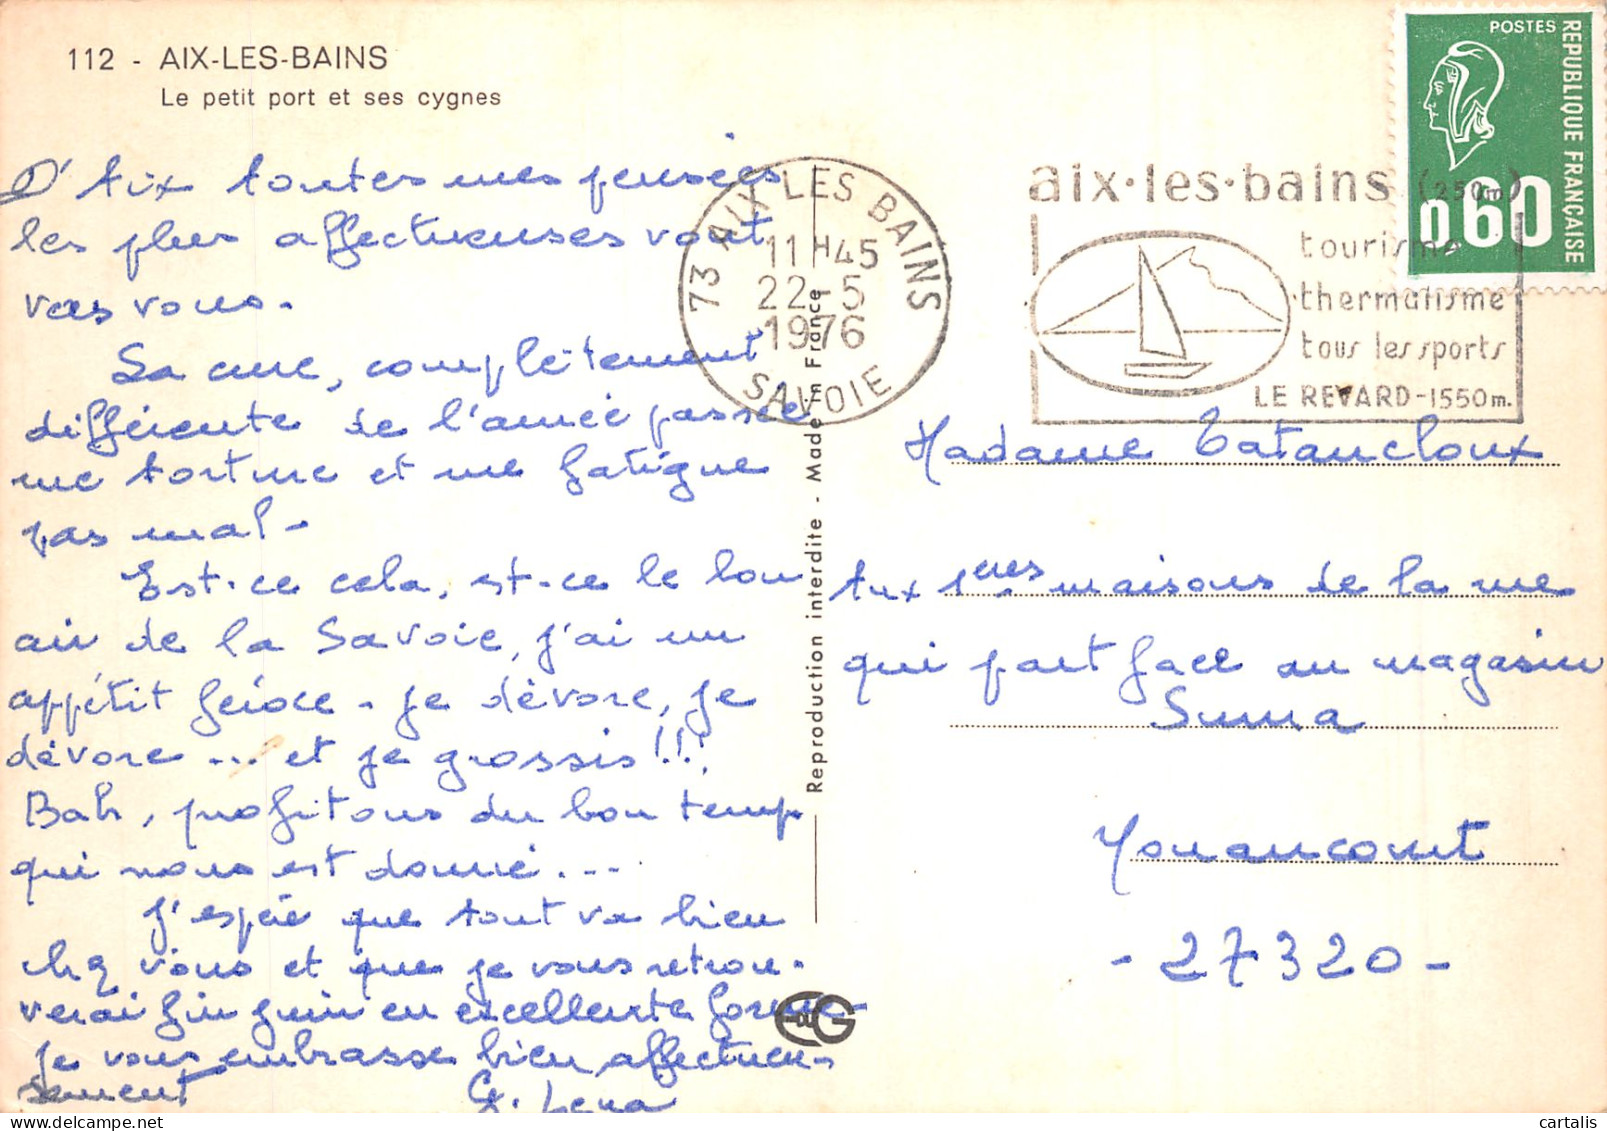 112 - AIX-LES-BAINS
Le petit port et ses cygnes
D'Aix toutes mes pensées
les plus affectueuses vont
vers vous.
La cure, complètement
différente de l'année passée
me torture et me fatigue
pas mal -
Est-ce cela, est-ce le bon
air de la Savoie, j'ai un
appétit féroce - je dévore, je
dévore ... et je grossis !!!
Bah, profitons du bon temps
qui nous est donné ...
J'espère que tout va bien
chez vous et que je vous retrou-
verai fin juin en excellente forme -
Je vous embrasse bien affectueu-
sement
G.
73 AIX LES BAINS
11H45
22-5
1976
SAVOIE
Reproduction interdite - Made in France
aix·les·bains (250m)
tourisme
thermalisme
tous les sports
LE REVARD-1550m.
POSTES
REPUBLIQUE FRANÇAISE
0,60
Madame
Aux 1ères maisons de la rue
qui part face au magasin
Suma
Nonancourt
- 27320 -
© cartalis
www.delcampe.net